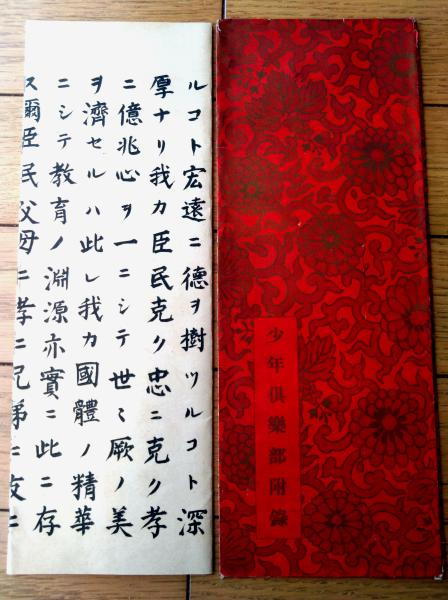 ルコト宏遠ニ德ヲ樹ツルコト深
厚ナリ我カ臣民克ク忠ニ克ク孝
ニ億兆心ヲ一ニシテ世々厥ノ美
ヲ濟セルハ此レ我カ國體ノ精華
ニシテ教育ノ淵源亦實ニ此ニ存
ス爾臣民父母ニ孝ニ兄弟ニ友ニ
少年俱樂部附錄